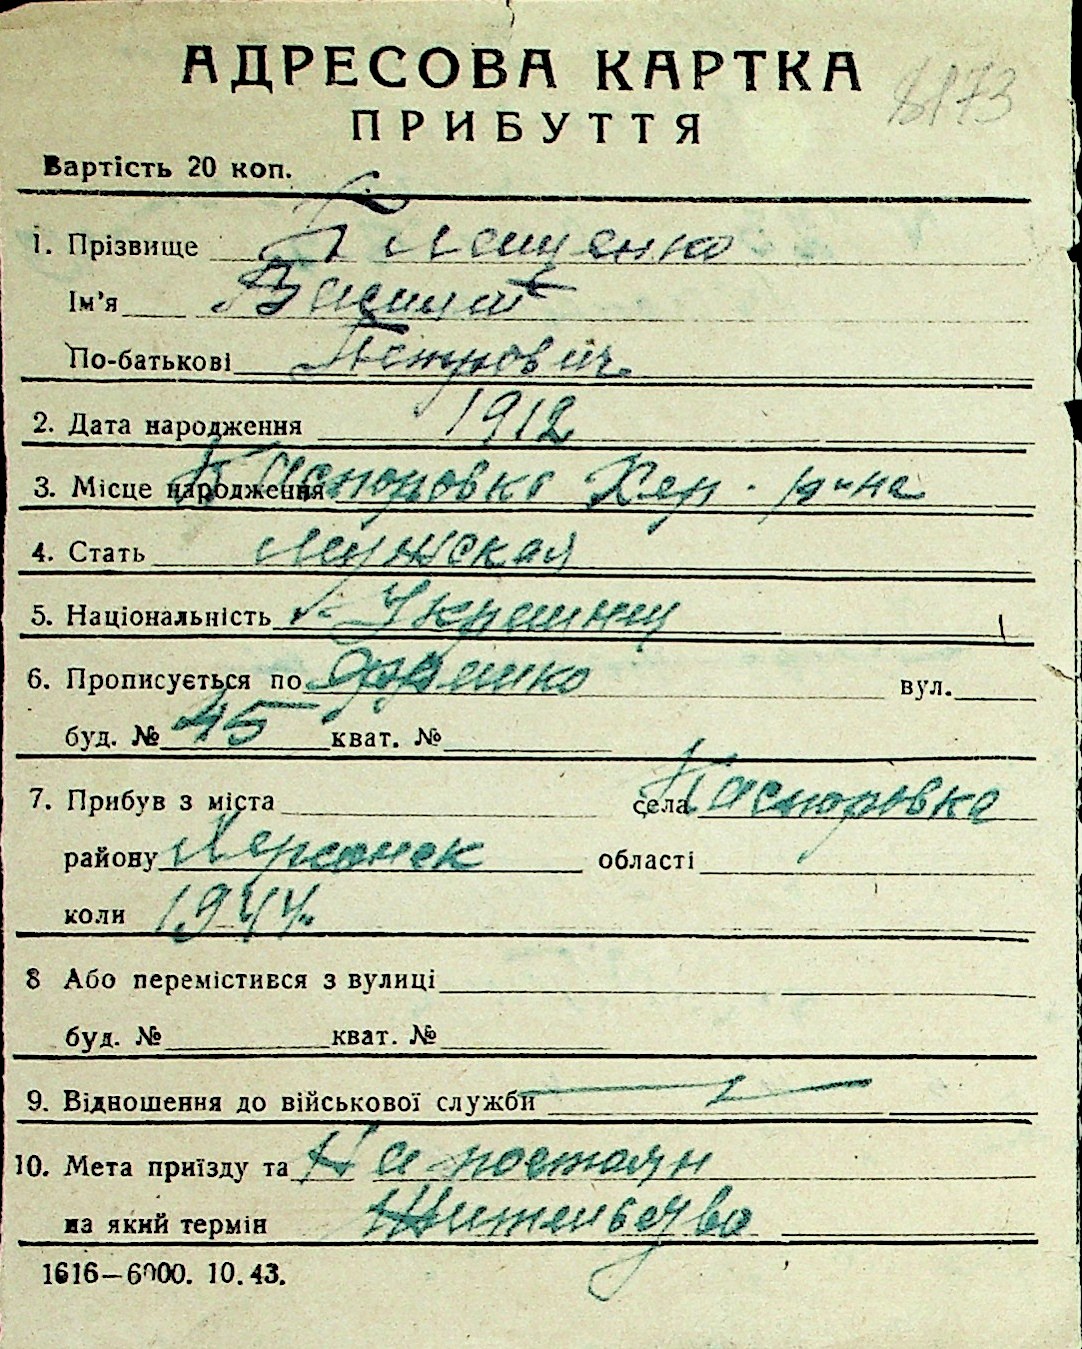 АДРЕСОВА КАРТКА
8173
ПРИБУТТЯ
Вартість 20 коп.
1. Прізвище
Ім'я Василий
По-батькові Петрович
2. Дата народження 1912
3. Місце народження Касперовка Хер. р-на
4. Стать Мужская
5. Національність Украинец
6. Прописується по Франко вул.
буд. № 45 кват. №
7. Прибув з міста села Касперовка
району Херсонск області
коли 1944
8 Або перемістився з вулиці
буд. № кват. №
9. Відношення до військової служби
10. Мета приїзду та На постоян
на який термін Жительство
1616—6000. 10. 43.